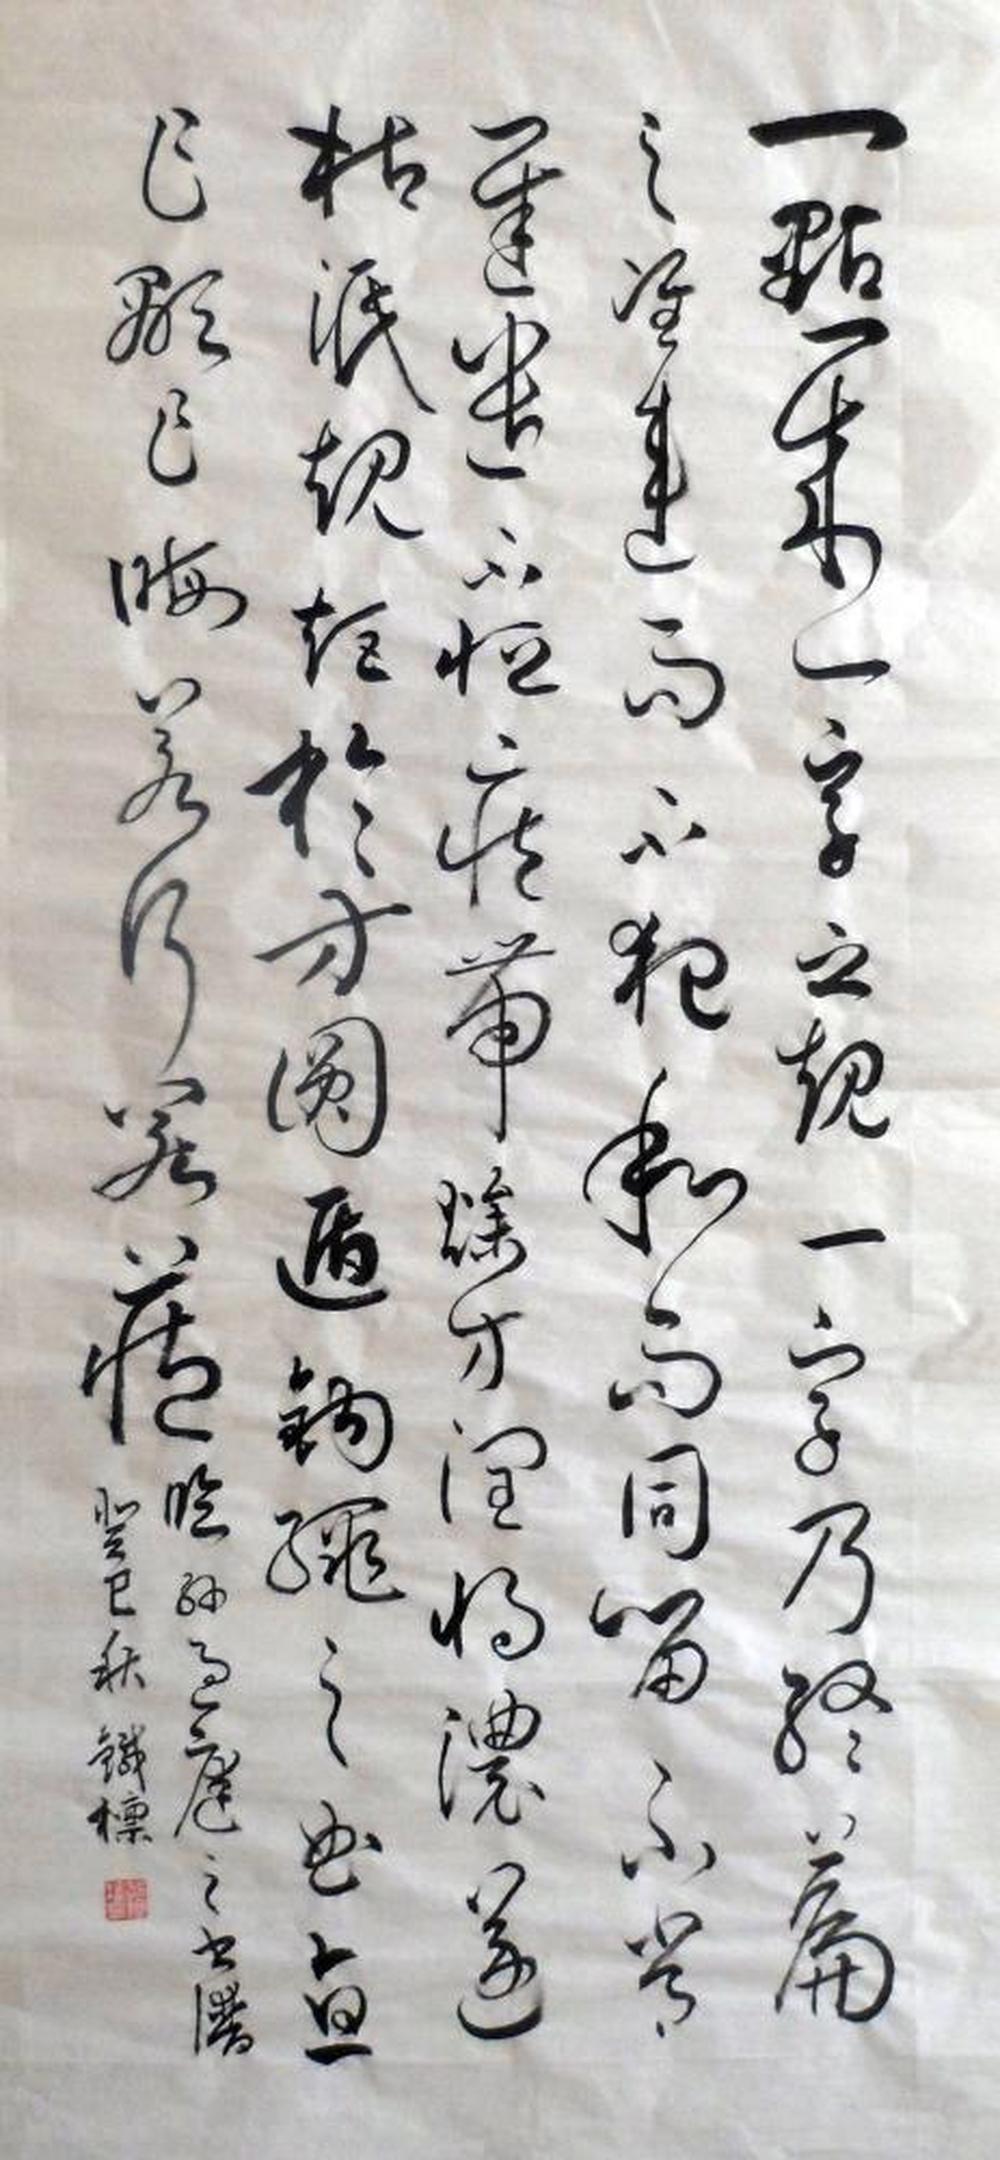 一點成一字之規一字乃終篇
之準違而不犯和而同留不常
遲遣不恒疾帶燥方潤將濃遂
枯泯規矩於方圓遁鉤繩之曲直
乍顯乍晦若行若藏臨孫過庭之書譜
癸巳秋